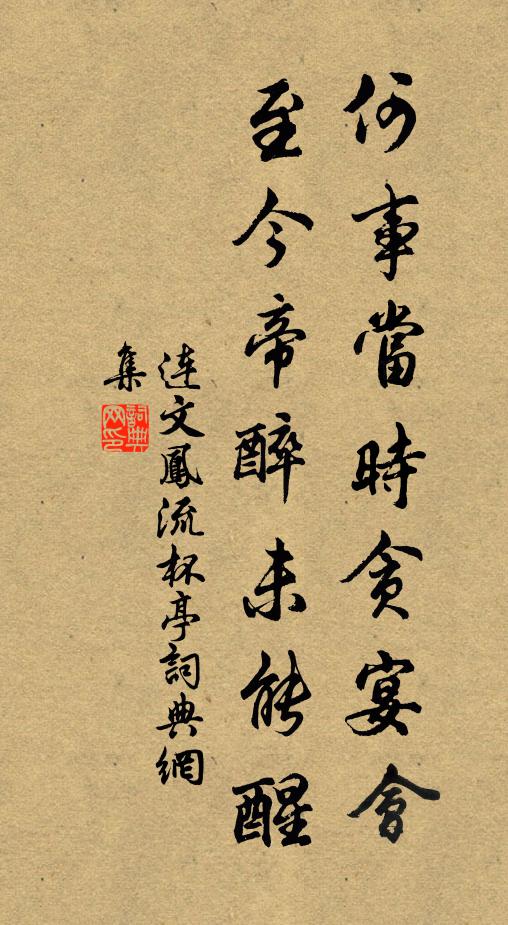 何事當時貪宴會
至今帝醉未能醒
連文鳳流杯亭詞典網
集
詞典网印